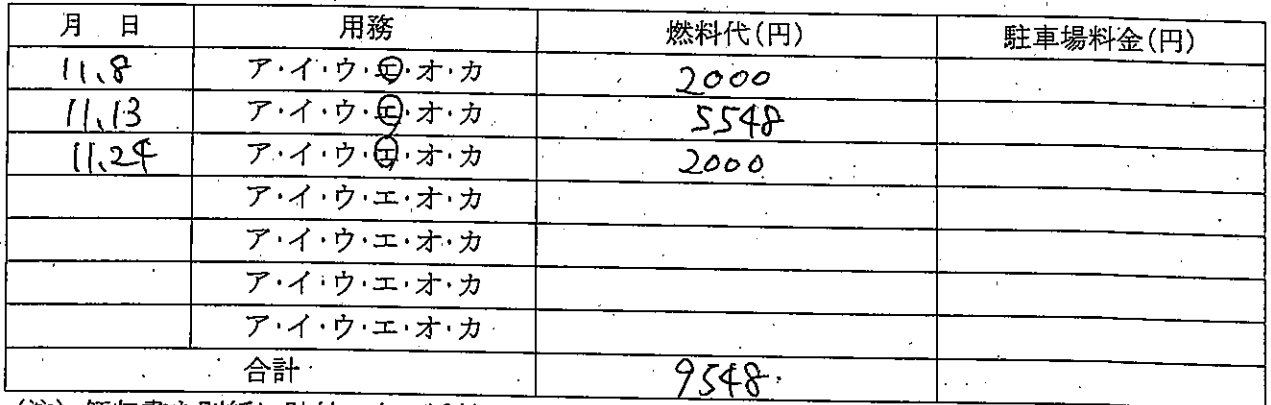 月 日 用務 燃料代(円) 駐車場料金(円)
11.8 ア・イ・ウ・エ・オ・カ 2000
11.13 ア・イ・ウ・エ・オ・カ 5548
11.24 ア・イ・ウ・エ・オ・カ 2000
ア・イ・ウ・エ・オ・カ
ア・イ・ウ・エ・オ・カ
ア・イ・ウ・エ・オ・カ
ア・イ・ウ・エ・オ・カ
合計 9548